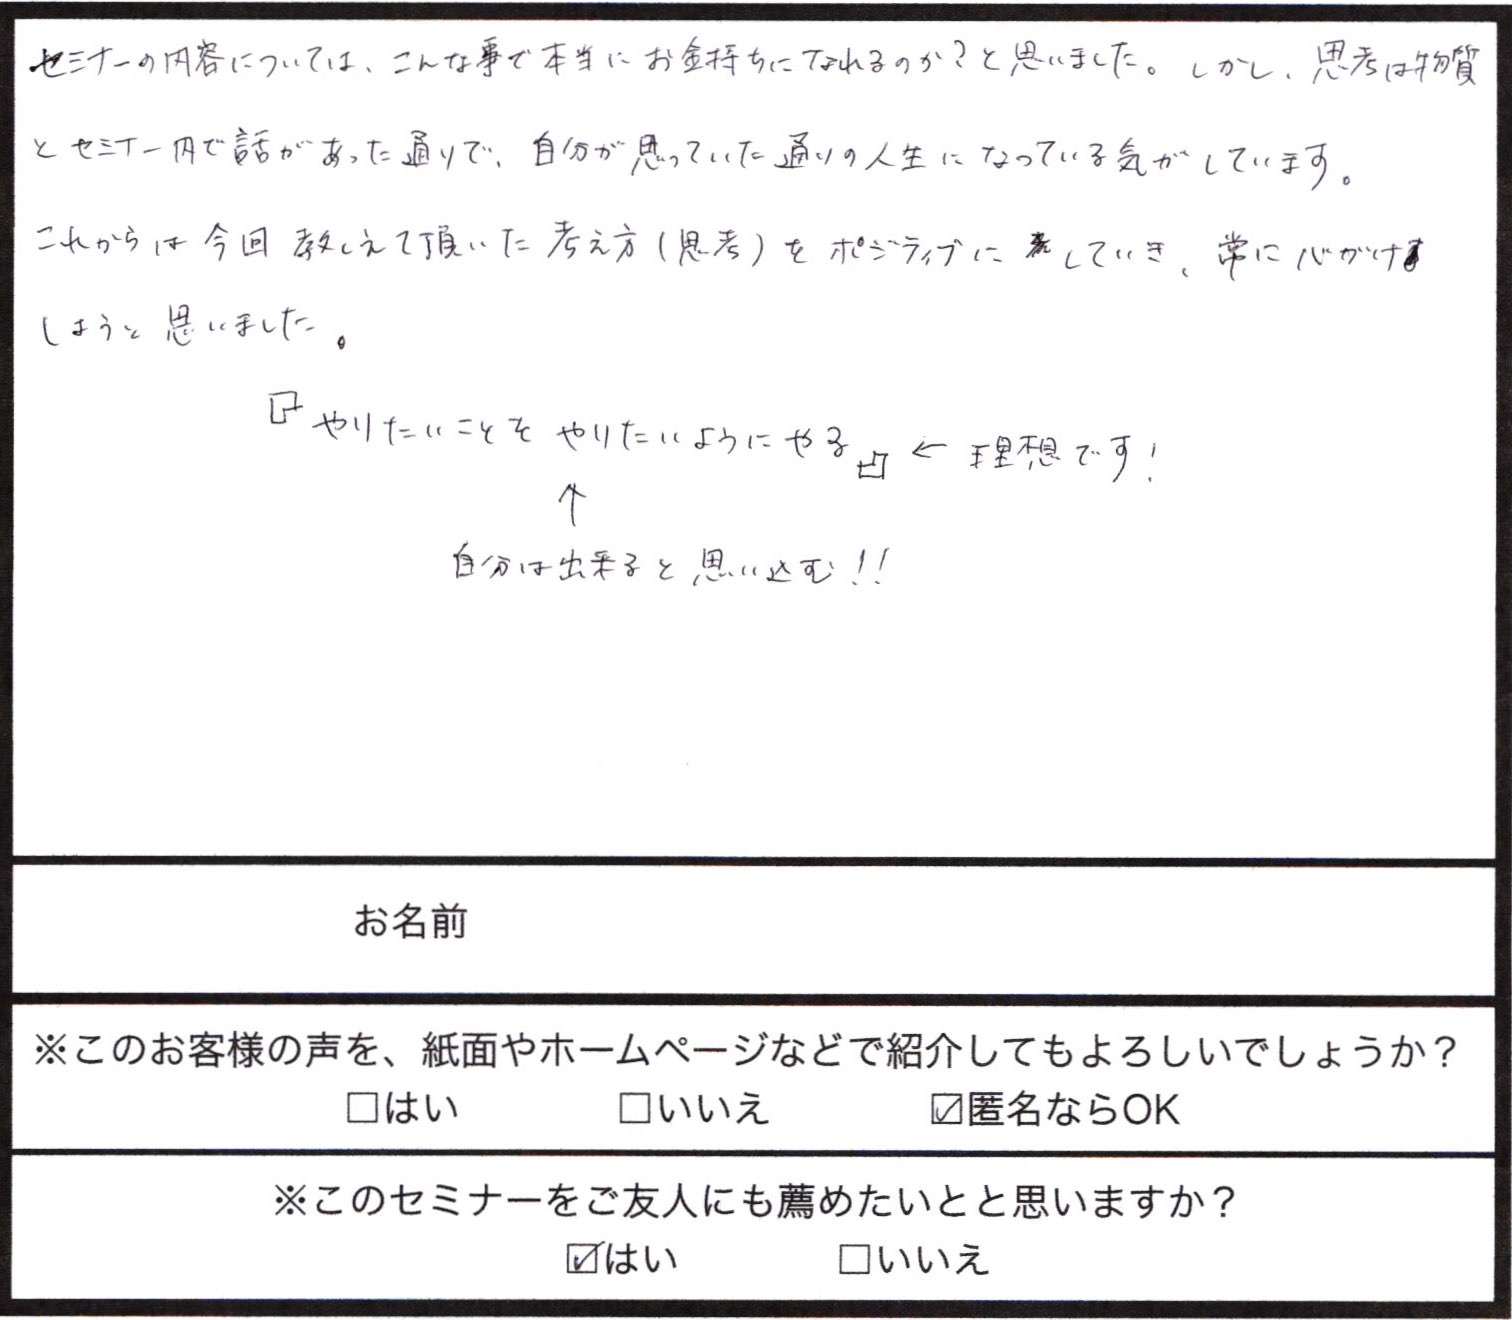 セミナーの内容については、こんな事で本当にお金持ちになれるのか?と思いました。しかし、思考は物質
とセミナー内で話があった通りで、自分が思っていた通りの人生になっている気がしています。
これからは今回教しえて頂いた考え方(思考)をポジティブにしていき、常に心がけ
しようと思いました。
『やりたいことをやりたいようにやる』←理想です!
↑
自分は出来ると思い込む!!
お名前
※このお客様の声を、紙面やホームページなどで紹介してもよろしいでしょうか?
□はい □いいえ ☑匿名ならOK
※このセミナーをご友人にも薦めたいとと思いますか?
☑はい □いいえ